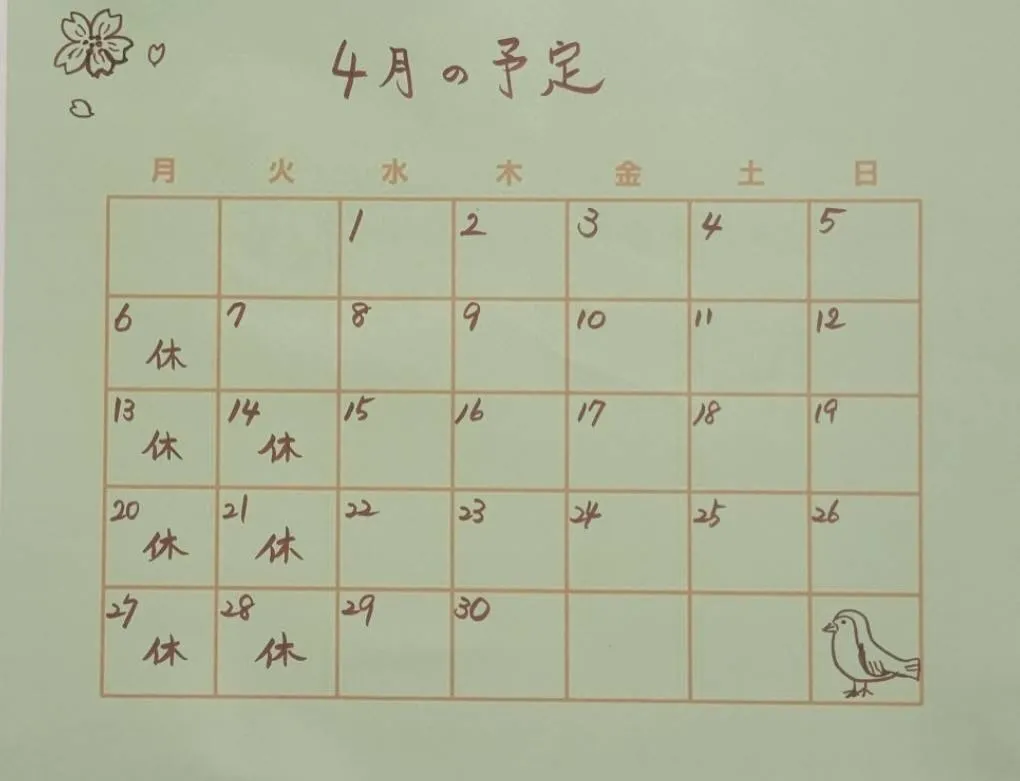 4月の予定
月 火 水 木 金 土 日
1 2 3 4 5
6 7 8 9 10 11 12
休
13 14 15 16 17 18 19
休 休
20 21 22 23 24 25 26
休 休
27 28 29 30
休 休